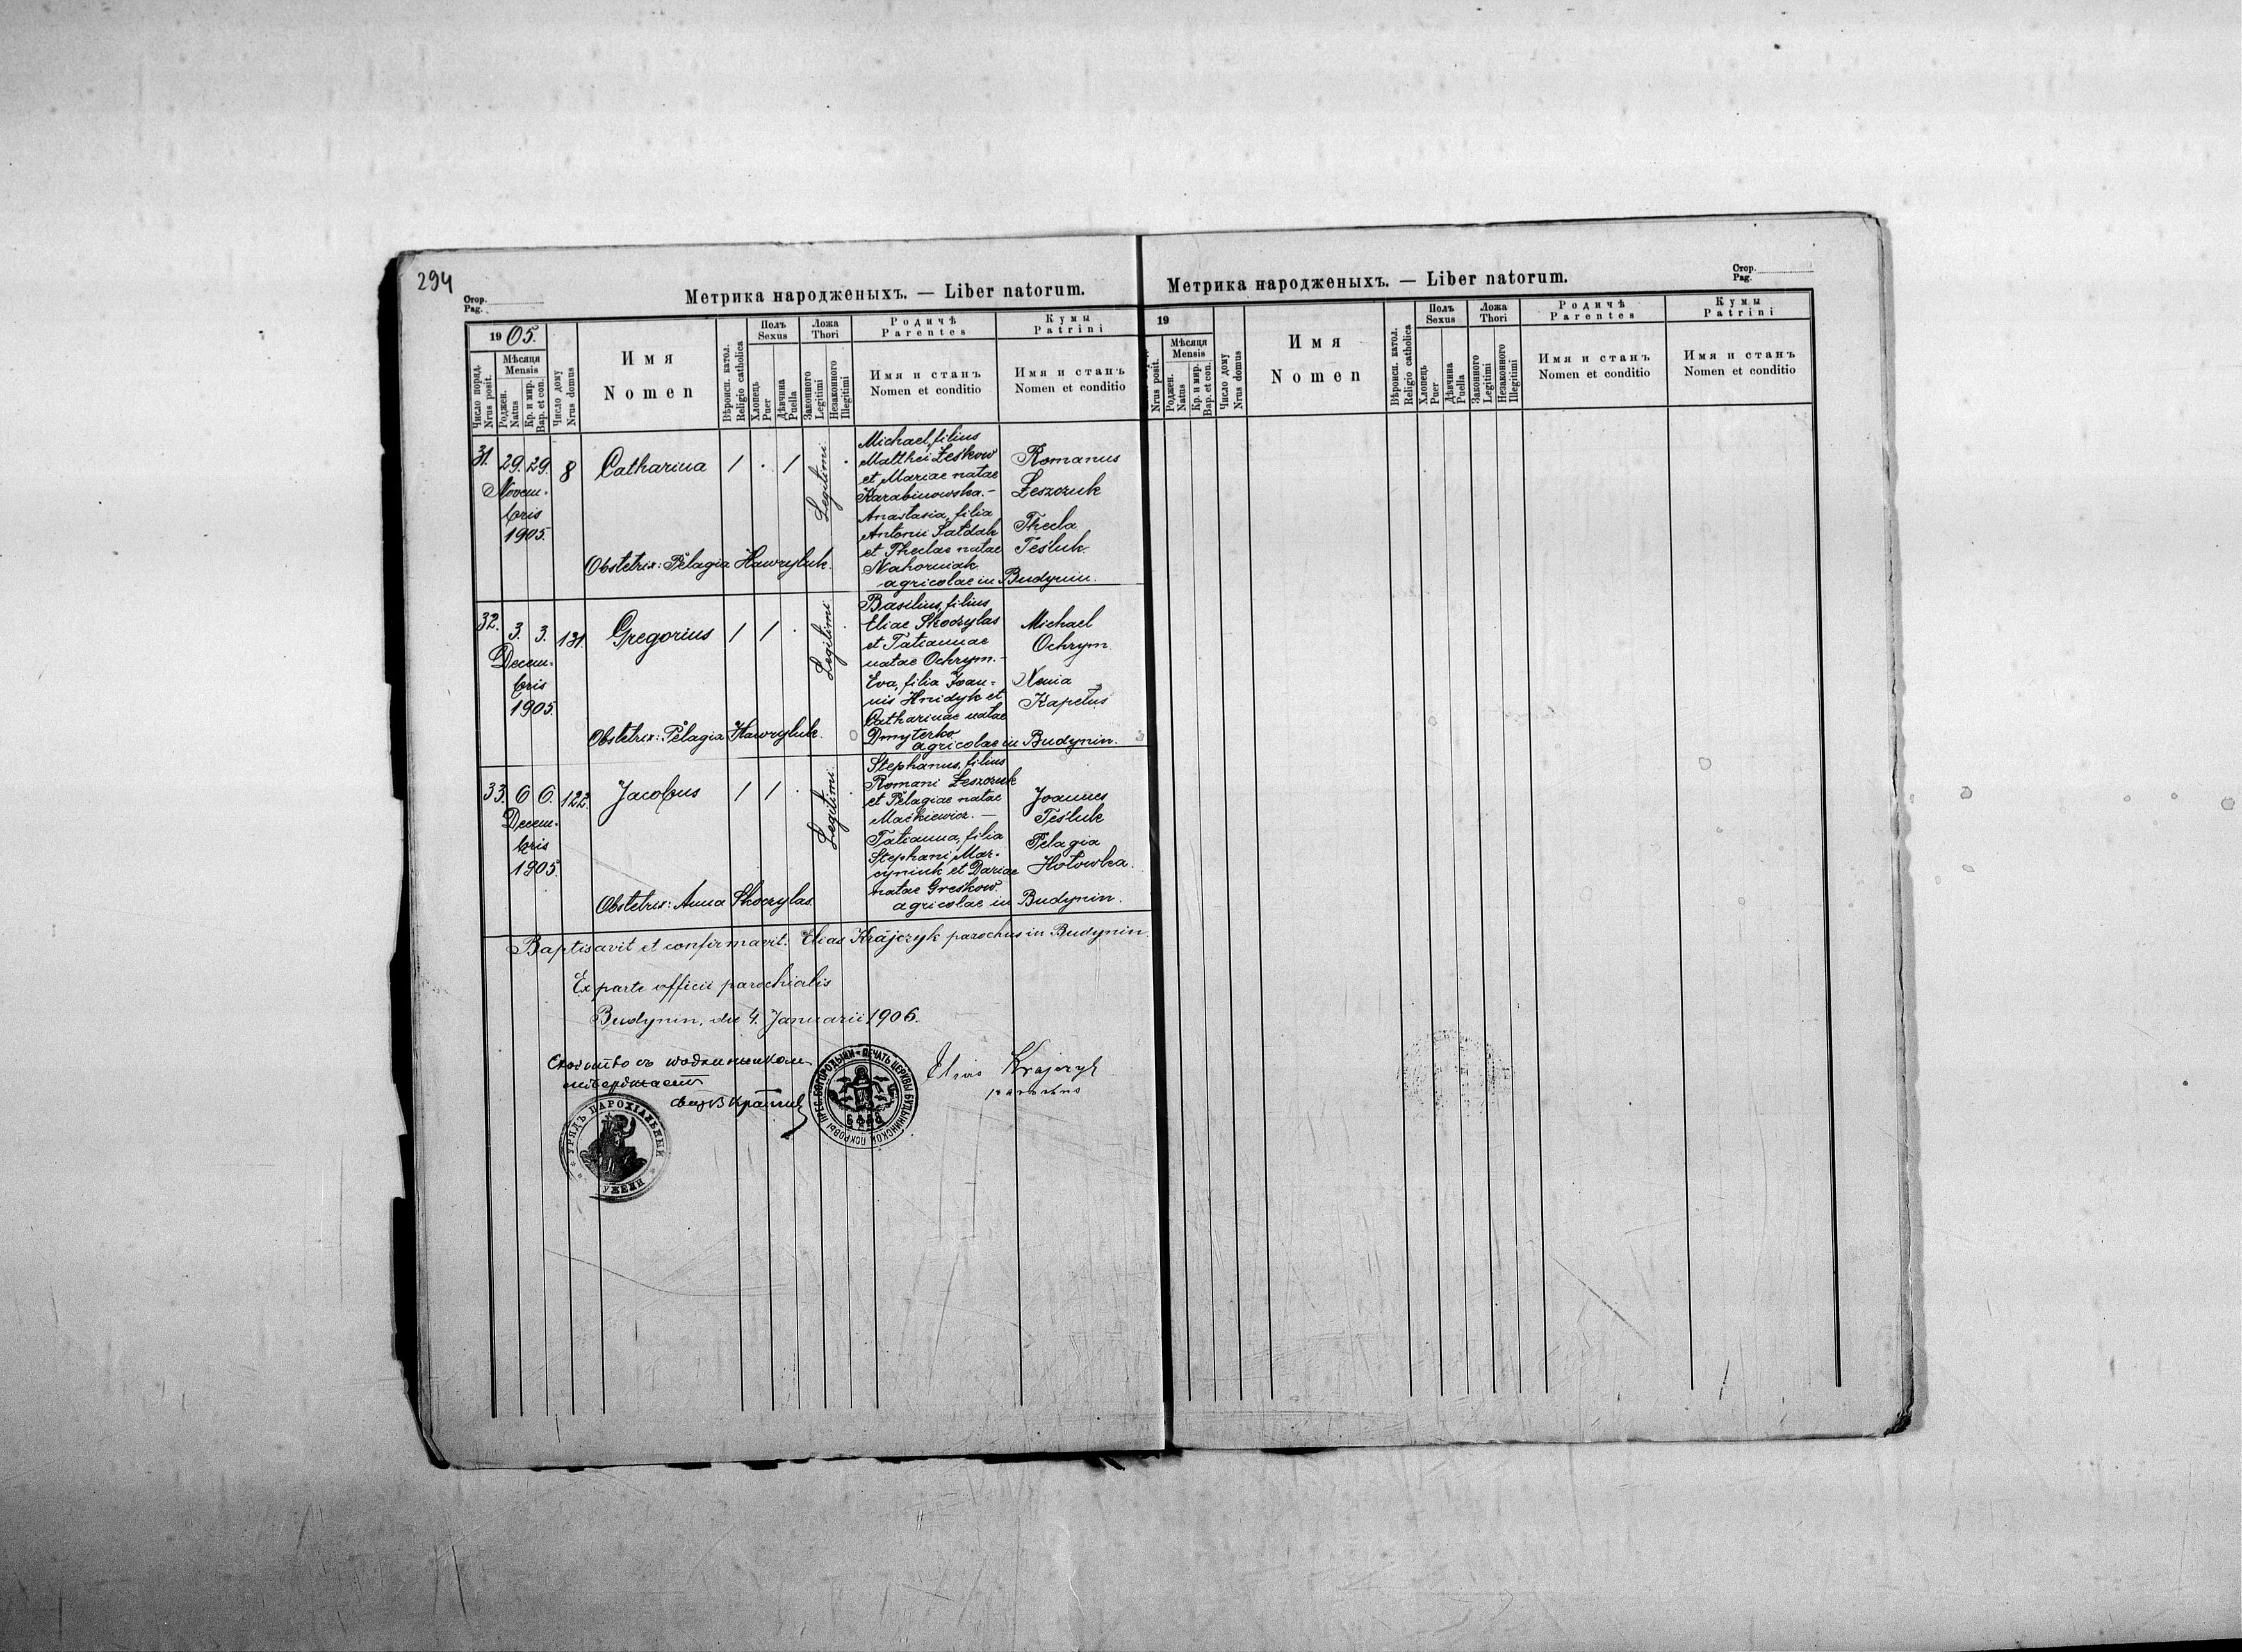 294
Стор.
Pag.
Метрика народженыхъ. — Liber natorum.
1905.
Число поряд.
Nrus posit.
Мѣсяця
Mensis
Роджен.
Natus
Кр. и мир.
Bap. et con.
Число дому
Nrus domus
Имя
Nomen
Вѣроисп. катол.
Religio catholica
Полъ
Sexus
Хлопець
Puer
Дѣвчина
Puella
Ложа
Thori
Законного
Legitimi
Незаконного
Illegitimi
Родичѣ
Parentes
Имя и станъ
Nomen et conditio
Кумы
Patrini
Имя и станъ
Nomen et conditio
31. 29. 29. 8 Catharina 1 . 1 Legitimi .
Novem-
bris
1905.
Michael, filius
Matthei Leśkow
et Mariae natae
Karabinowska.-
Anastasia, filia
Antonii Łatdak
et Theclae natae
Nahorniak.
agricolae in Budynin.
Romanus
Łeszczuk
Thecla
Teśluk
Obstetrix: Pelagia Hawryluk.
32. 3. 3. 131. Gregorius 1 1 . Legitimi .
Decem-
bris
1905.
Basilius, filius
Eliae Skoczylas
et Tatiannae
natae Ochrym.-
Eva, filia Joan-
nis Hnidyk et
Catharinae natae
Dmyterko
agricolae in Budynin.
Michael
Ochrym
Xenia
Kapeluś
Obstetrix: Pelagia Hawryluk.
33. 6 6. 122. Jacobus 1 1 . Legitimi .
Decem-
bris
1905.
Stephanus, filius
Romani Łeszczuk
et Pelagiae natae
Maćkiewicz. —
Tatianna, filia
Stephani Mar-
cyniuk et Dariae
natae Greskow.
agricolae in Budynin.
Joannes
Teśluk
Pelagia
Hołowka.
Obstetrix: Anna Skoczylas
Baptisavit et confirmavit: Elias Krajczyk parochus in Budynin.
Ex parte officii parochialis
Budynin, die 4. Januarii 1906.
Elias Krajczyk
parochus
УРЯДЪ ПАРОХІАЛЬНЫЙ
ПЕЧАТЬ ЦЕРКВЫ БУДЫНИНСКОЙ ПОКРОВЫ ПРЕС. БОГОРОДЫЦИ
Стор.
Pag.
Метрика народженыхъ. — Liber natorum.
19
Nrus posit.
Мѣсяця
Mensis
Роджен.
Natus
Кр. и мир.
Bap. et con.
Число дому
Nrus domus
Имя
Nomen
Вѣроисп. катол.
Religio catholica
Полъ
Sexus
Хлопець
Puer
Дѣвчина
Puella
Ложа
Thori
Законного
Legitimi
Незаконного
Illegtimi
Родичѣ
Parentes
Имя и станъ
Nomen et conditio
Кумы
Patrini
Имя и станъ
Nomen et conditio